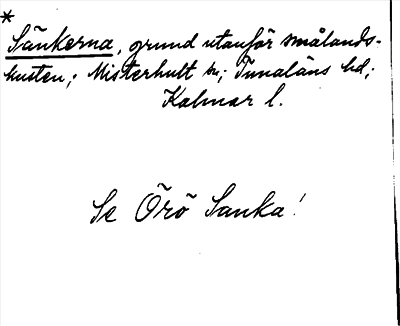 *
Sänkerna, grund utanför smålands-
kusten; Misterhult sn; Tunaläns hd;
Kalmar l.
Se Örö Sanka!